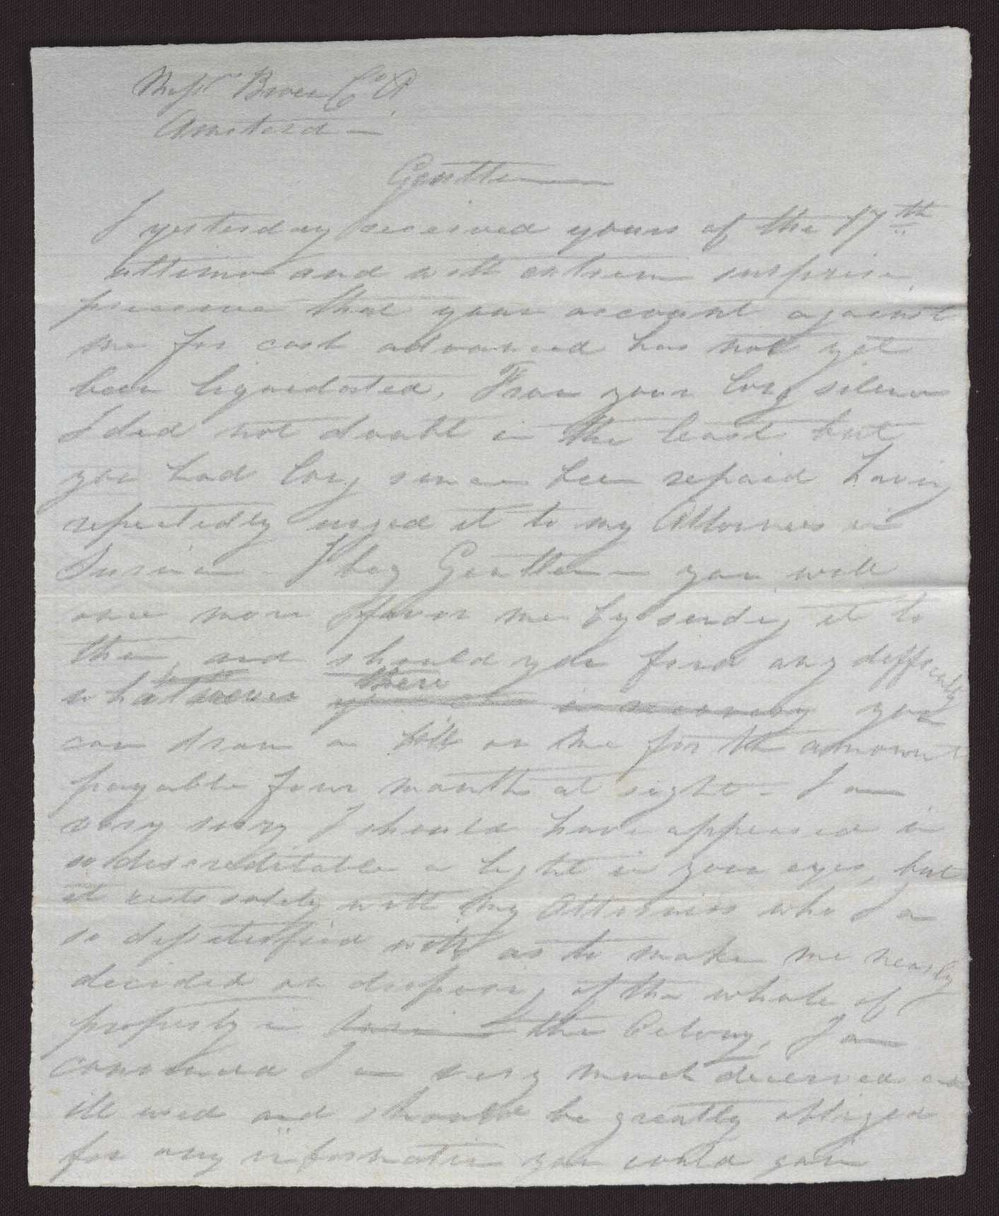 Messrs Brven Co A
Amsterd
Gentlemen
I yesterday received yours of the 17th
ultimo and with extreme surprise
perceive that your account against
me for cash advanced has not yet
been liquedated, From your long silence
I did not doubt in the least but
you had long since been repaid having
repeatedly urged it to my Attornies in
Surinam I beg Gentlemen you will
once more favor me by sending it to
them, and should you find any difficulty
whatsoever there in recovering you
can draw a bill on me for the amount
payable four months at sight - I am
very sorry I should have appeared in
so discreditable a light in your eyes, but
it rests solely with my Attornies who I am
so disatisfied with as to make me nearly
decided on disposing of the whole of
property in the Colony, I am
convinced I am very much deceived and
ill used and should be greatly obliged
for any information you could give